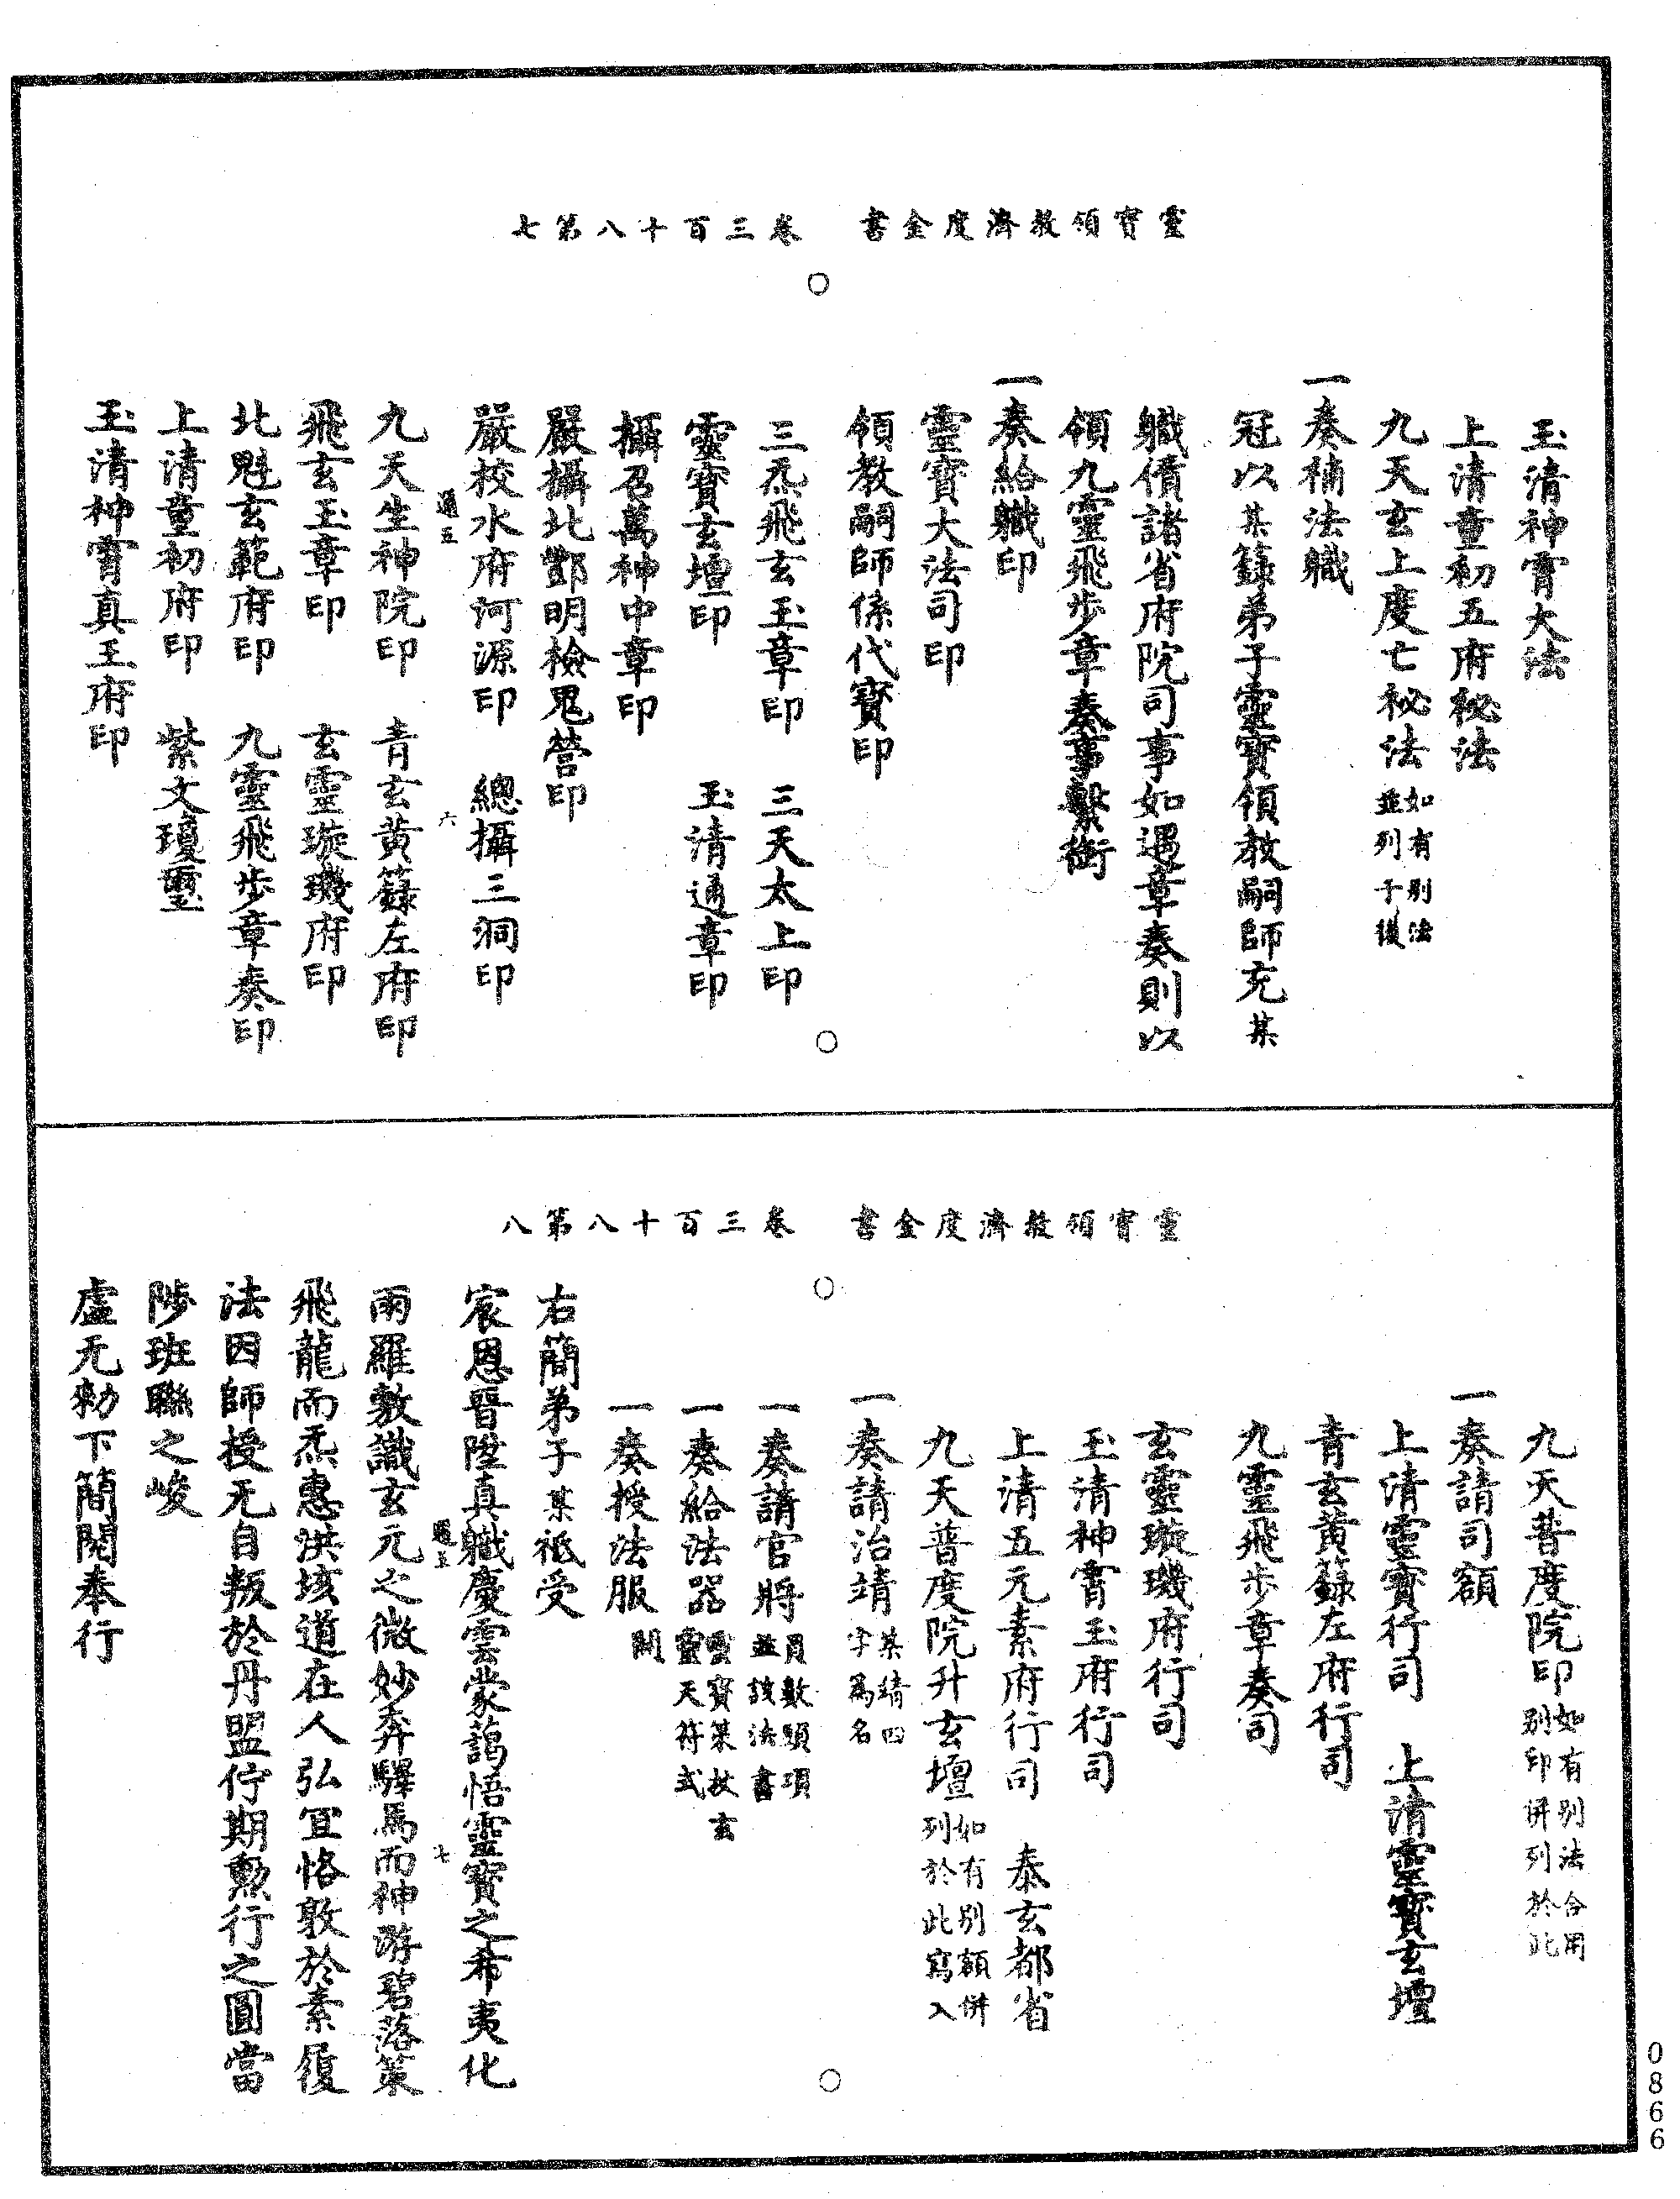 靈寶領教濟度金書　卷三百十八第七
玉清神霄大法
上清童初五府秘法
九天玄上度亡秘法如有別法並列于後
一奏補法職
冠以某籙弟子靈寶領教嗣師充某
職㑺諸省府院司事如遇章奏則以
領九靈飛步章奏事繫銜
一奏給職印
靈寶大法司印
領教嗣師係代寶印
三炁飛玄玉章印　三天太上印
靈寶玄壇印　玉清通章印
攝召萬神中章印
嚴攝北酆明檢鬼營印
嚴校水府河源印　總攝三洞印
通五　六
九天生神院印　青玄黃籙左府印
飛玄玉章印　玄靈璇璣府印
北魁玄範府印　九靈飛步章奏印
上清童初府印　紫文瓊璽
玉清神霄真王府印
靈寶領教濟度金書　卷三百十八第八
九天普度院印如有別法合用別印併列於此
一奏請司額
上清靈寶行司　上清靈寶玄壇
青玄黃籙左府行司
九靈飛步章奏司
玄靈璇璣府行司
玉清神霄玉府行司
上清五元素府行司　泰玄都省
九天普度院升玄壇如有別額併列於此寫入
一奏請治靖某靖四字為名
一奏請官將員數頭項並該法書
一奏給法器靈寶策杖玄靈天符式
一奏授法服關
右簡弟子某祗受
宸恩晉陞真職慶雲蒙藹悟靈寶之希夷化
通五　七
雨羅敷識玄元之微妙奔驛馬而神游碧落策
飛龍而炁惠洪垓道在人弘宜恪敦於素履
法因師授无自叛於丹盟佇期勲行之圓當
陟班聯之峻
虛无勑下簡閱奉行
0866